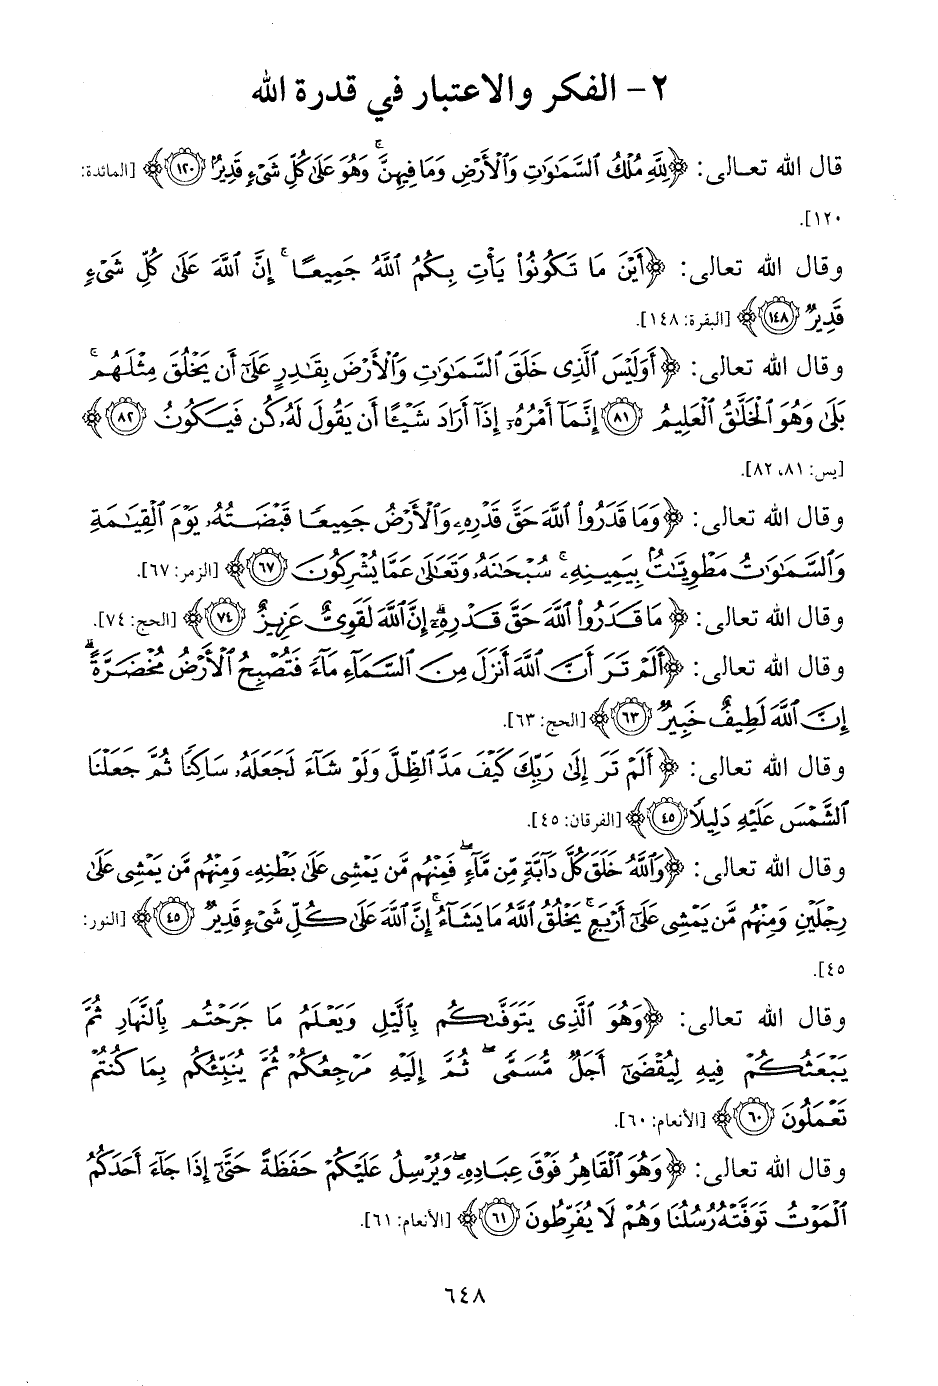 ٢ - الفكر والاعتبار في قدرة الله
قال الله تعالى: ﴿لِلَّهِ مُلْكُ ٱلسَّمَٰوَٰتِ وَٱلْأَرْضِ وَمَا فِيهِنَّ ۚ وَهُوَ عَلَىٰ كُلِّ شَىْءٍ قَدِيرٌۢ ١٢٠﴾ [المائدة:
١٢٠].
وقال الله تعالى: ﴿أَيْنَ مَا تَكُونُوا۟ يَأْتِ بِكُمُ ٱللَّهُ جَمِيعًا ۚ إِنَّ ٱللَّهَ عَلَىٰ كُلِّ شَىْءٍ
قَدِيرٌ ١٤٨﴾ [البقرة: ١٤٨].
وقال الله تعالى: ﴿أَوَلَيْسَ ٱلَّذِى خَلَقَ ٱلسَّمَٰوَٰتِ وَٱلْأَرْضَ بِقَٰدِرٍ عَلَىٰٓ أَن يَخْلُقَ مِثْلَهُم ۚ
بَلَىٰ وَهُوَ ٱلْخَلَّٰقُ ٱلْعَلِيمُ ٨١ إِنَّمَآ أَمْرُهُۥٓ إِذَآ أَرَادَ شَيْـًٔا أَن يَقُولَ لَهُۥ كُن فَيَكُونُ ٨٢﴾
[يس: ٨١، ٨٢].
وقال الله تعالى: ﴿وَمَا قَدَرُوا۟ ٱللَّهَ حَقَّ قَدْرِهِۦ وَٱلْأَرْضُ جَمِيعًا قَبْضَتُهُۥ يَوْمَ ٱلْقِيَٰمَةِ
وَٱلسَّمَٰوَٰتُ مَطْوِيَّٰتٌۢ بِيَمِينِهِۦ ۚ سُبْحَٰنَهُۥ وَتَعَٰلَىٰ عَمَّا يُشْرِكُونَ ٦٧﴾ [الزمر: ٦٧].
وقال الله تعالى: ﴿مَا قَدَرُوا۟ ٱللَّهَ حَقَّ قَدْرِهِۦٓ ۗ إِنَّ ٱللَّهَ لَقَوِىٌّ عَزِيزٌ ٧٤﴾ [الحج: ٧٤].
وقال الله تعالى: ﴿أَلَمْ تَرَ أَنَّ ٱللَّهَ أَنزَلَ مِنَ ٱلسَّمَآءِ مَآءً فَتُصْبِحُ ٱلْأَرْضُ مُخْضَرَّةً ۗ
إِنَّ ٱللَّهَ لَطِيفٌ خَبِيرٌ ٦٣﴾ [الحج: ٦٣].
وقال الله تعالى: ﴿أَلَمْ تَرَ إِلَىٰ رَبِّكَ كَيْفَ مَدَّ ٱلظِّلَّ وَلَوْ شَآءَ لَجَعَلَهُۥ سَاكِنًا ثُمَّ جَعَلْنَا
ٱلشَّمْسَ عَلَيْهِ دَلِيلًا ٤٥﴾ [الفرقان: ٤٥].
وقال الله تعالى: ﴿وَٱللَّهُ خَلَقَ كُلَّ دَآبَّةٍ مِّن مَّآءٍ ۖ فَمِنْهُم مَّن يَمْشِى عَلَىٰ بَطْنِهِۦ وَمِنْهُم مَّن يَمْشِى عَلَىٰ
رِجْلَيْنِ وَمِنْهُم مَّن يَمْشِى عَلَىٰٓ أَرْبَعٍ ۚ يَخْلُقُ ٱللَّهُ مَا يَشَآءُ ۚ إِنَّ ٱللَّهَ عَلَىٰ كُلِّ شَىْءٍ قَدِيرٌ ٤٥﴾ [النور:
٤٥].
وقال الله تعالى: ﴿وَهُوَ ٱلَّذِى يَتَوَفَّىٰكُم بِٱلَّيْلِ وَيَعْلَمُ مَا جَرَحْتُم بِٱلنَّهَارِ ثُمَّ
يَبْعَثُكُمْ فِيهِ لِيُقْضَىٰٓ أَجَلٌ مُّسَمًّى ۖ ثُمَّ إِلَيْهِ مَرْجِعُكُمْ ثُمَّ يُنَبِّئُكُم بِمَا كُنتُمْ
تَعْمَلُونَ ٦٠﴾ [الأنعام: ٦٠].
وقال الله تعالى: ﴿وَهُوَ ٱلْقَاهِرُ فَوْقَ عِبَادِهِۦ ۖ وَيُرْسِلُ عَلَيْكُمْ حَفَظَةً حَتَّىٰٓ إِذَا جَآءَ أَحَدَكُمُ
ٱلْمَوْتُ تَوَفَّتْهُ رُسُلُنَا وَهُمْ لَا يُفَرِّطُونَ ٦١﴾ [الأنعام: ٦١].
٦٤٨